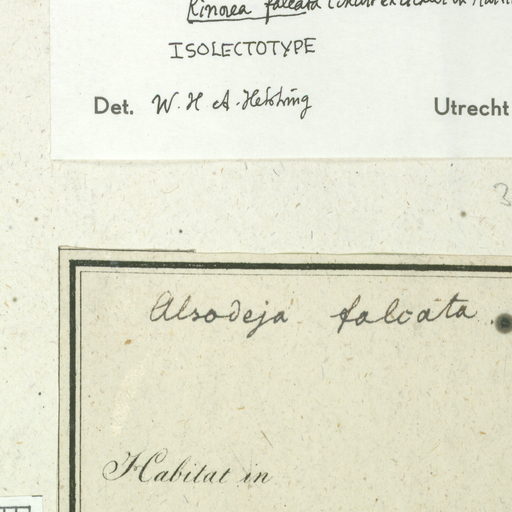 Rinorea falcata (Mart. ex
ISOLECTOTYPE
Det. W. H. A. Hekking Utrecht
3
Alsodeja falcata.
Habitat in